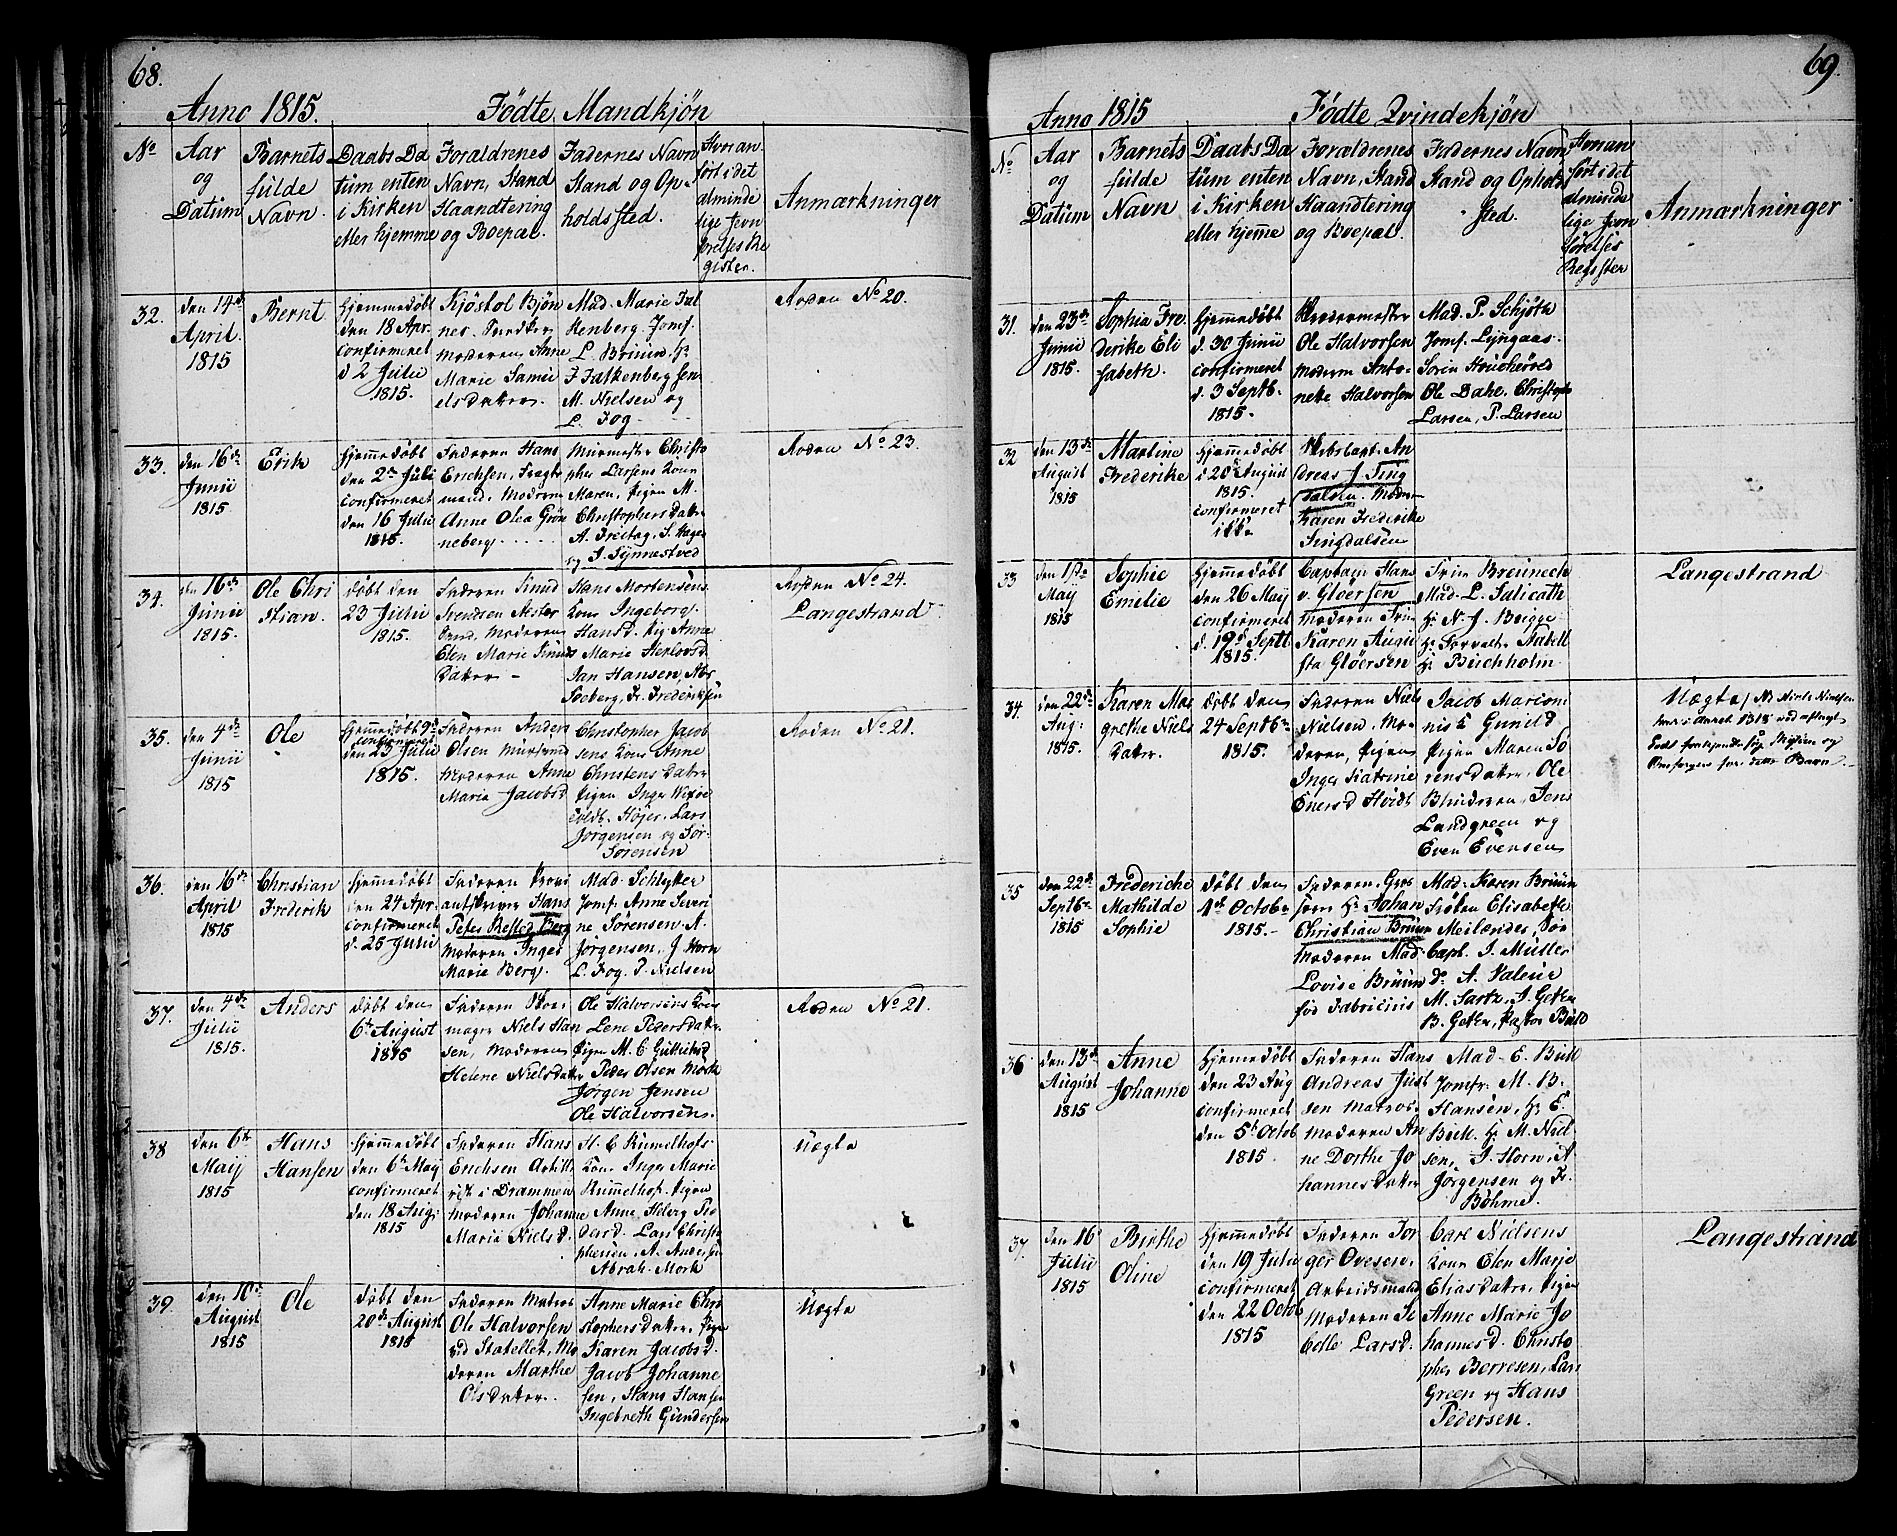 68.
Anno 1815. Fødte Mandkjøn
No
Aar
og
Datum
Barnets
fulde
Navn.
Daabs Da
tum enten
i Kirken
eller hjemme
Foraldrenes
Navn, Stand
Haandtering
og Boepæl.
Fadernes Navn
Stand og Op-
holdssted.
Hvor an
ført i det
alminde
lige Jevn
førelses Re
gister.
Anmærkninger
32.
den 14de
April.
1815
Bernt
Hjemmedøbt
den 18 Apr.
confirmeret
d 2 Julii
1815.
Kjøstol Bjøn
nes.
Moderen Anne
Marie Samu
elsdatter.
Mad. Marie Fal
kenberg. Jomf.
L. Bruun, Hr
F Falkenberg sen
M. Nielsen og
L. Fog
Roden No 20.
33.
den 16de
Junii
1815
Erik
Hjemmedøbt
den 2den Juli
confirmeret
den 16 Julii
1815.
Faderen Hans
Erichsen, Fragt
mand, Moderen
Anne Olea Grøn
neberg
Murmester Christo
pher Larsens Kone
Maren, Pigen M.
Christophersdatter
A. Freitag, S. Hage
og J. Synnestved
Roden No 23.
34.
den 16de
Junii
1815.
Ole Chri
stian.
døbt den
23 Julii
1815.
Faderen Knud
Svendsen
Moderen
Elen Marie Knuds
datter
Hans Mortensens
Kone Ingeborg
Hansd. Pig. Anne
Marie Herlovsd.
Jan Hansen,
Soeberg, Fr. Frederiksen
Roden No 24.
Langestrand
35.
den 4de
Junii
1815
Ole
Hjemmedøbt 9de
confirmeret
den 23 Julii
1815.
Faderen Anders
Olsen
Moderen Anne
Maria Jacobsd
Christopher Jacob
sens Kone Anne
Christensdatter
Pigen Inger
Højer. Lars
Jørgensen og Sør.
Sørensen
Roden No 21.
36.
den 16de
April
1815
Christian
Frederik
Hjemmedøbt
den 24 Apr.
confirmeret
d. 25 Julii
Faderen Provi
antskriver Hans
Peter Rested Berg
Moderen Inger
Marie Berg.
Mad. Schlytter
Jomf. Anne Severi
ne Sørensen. A.
Jørgensen, J Horn
L. Fog. P. Nielsen
37.
den 4de
Julii
1815.
Anders
døbt den
6te August
1815
Faderen Skoe
mager Niels Han
sen, Moderen
Helene Nielsdatter
Ole Halvorsens Kone
Lene Pedersdatter
Pigen M. E
Peder Olsen Mørk
Jørgen Jensen
Ole Halvorsen.
Roden No 21.
38
den 6te
Maij
1815
Hans
Hansen
Hjemmedøbt
den 6te Maij
confirmeret
den 18 Aug:
1815
Faderen Hans
Erichsen Artille
rist i Drammen
Moderen Johanne
Maria Nielsd.
H. C. Rummelhofs
Kone Inger Marie
Rummelhof. Pigen
Anne Helvig Pe
dersd. Lars Christo
phersen, A. Andersen
Abrah. Mørk
Uægte
39.
den 10de
August
1815
Ole
døbt den
20de August
1815
Faderen Matros
Ole Halvorsen
ved Statellet, Mo
deren Marthe
Olsdatter.
Anne Marie Chri
stophersdatter, Pigen
Karen Jacobsd.
Jacob Johanne
sen, Hans Hansen
Ingebreth Gundersen
Uægte
69.
Anno 1815 Fødte Qvindekjøn
No
Aar
og
Datum
Barnets
fulde
Navn
Daabs Da
tum enten
i Kirken
eller hjemme
Forældrenes
Navn, Stand
Haandtering
og Boepæl.
Fadernes Navn
Stand og Opholds
sted.
Hvor an
ført i det
alminde
lige Jevn
førelses
Register
Anmærkninger
31.
den 23de
Junii
1815.
Sophia Fre
derike Eli
sabeth.
Hjemmedøbt
d. 30 Junii
confirmeret
d. 3 Septb.
1815.
Ole Halvorsen
Moderen Anto-
nette Halvorsen
Mad. P. Schjøth
Jomf. Lyngaas
Søren
Ole Dahl. Christopher
Larsen, P. Larsen
32
den 13de
August
1815
Martine
Frederike
Hjemmedøbt
d 20de August
1815.
confirmeret
ikke
An
dreas J Ting
dalsen. Moder
Karen Frederike
Tingdalsen
33
den 1ste
May
1815
Sophie
Emelie
Hjemmedøbt
den 26 Maij
confirmeret
d. 19de Septb
1815.
Captain Hans
v. Gløersen
Moderen Frue
Karen Augu
sta Gløersen
Fruen Breuneck
Mad. L. Falicath
Hr N. J. Brigge
Hr. Forvalter Stabell
Hr Buchholm
Langestrand
34.
den 22de
Aug:
1815.
Karen Mar
grethe Niels
datter.
døbt den
24 Septbr
1815.
Faderen Niels
Nielsen, Mo-
deren, Pigen
Inger Katrine
Enersd Hvidt
Jacob
Gunild
Pigen Maren Sø
rensdatter, Ole
Jens
Landgreen og
Even Evensen
Uægte / NB Niels Nielsen
har i Aaret 1818 ved aflagt
Eed
Omsorgen for dette Barn
35
den 22de
Septbr
1815
Fredericke
Mathilde
Sophie
døbt den
1ste Octobr
1815.
Faderen, Gros
serer Hr. Johan
Christian Bruun
Moderen Mad
Lovise Bruun
fød Fabricius
Mad. Karen Bruun
Frøken Elisabeth
Capt. J. Müller
M. Sartz, J.
B. Pastor Buld
36
den 13de
August
1815
Anne
Johanne
Hjemmedøbt
den 23 Aug
confirmeret
den 5te Octob
1815.
Faderen Hans
Andreas Just
sen Matros.
Moderen An
ne Dorthe Jo
hannesdatter
Mad. E. Bull
Jomfr. M. B.
Hansen, Hr E.
Bull. Hr. M. Niel
sen, J. Horn, A
Jørgensen og Fr.
Bøhme.
37.
den 16
Julii
1815
Birthe
Oline
Hjemmedøbt
den 19 Julii
confirmeret
den 22 Octob
1815
Faderen Tor
ger Ovesen.
Arbeidsmand
Moderen Si
belle Larsd.
Carl Nielsens
Kone Elen Marje
Eliasdatter, Pigen
Anne Marie Jo
hannesd. Christo
pher Berresen, Lars
Green og Hans
Pedersen.
Langestrand